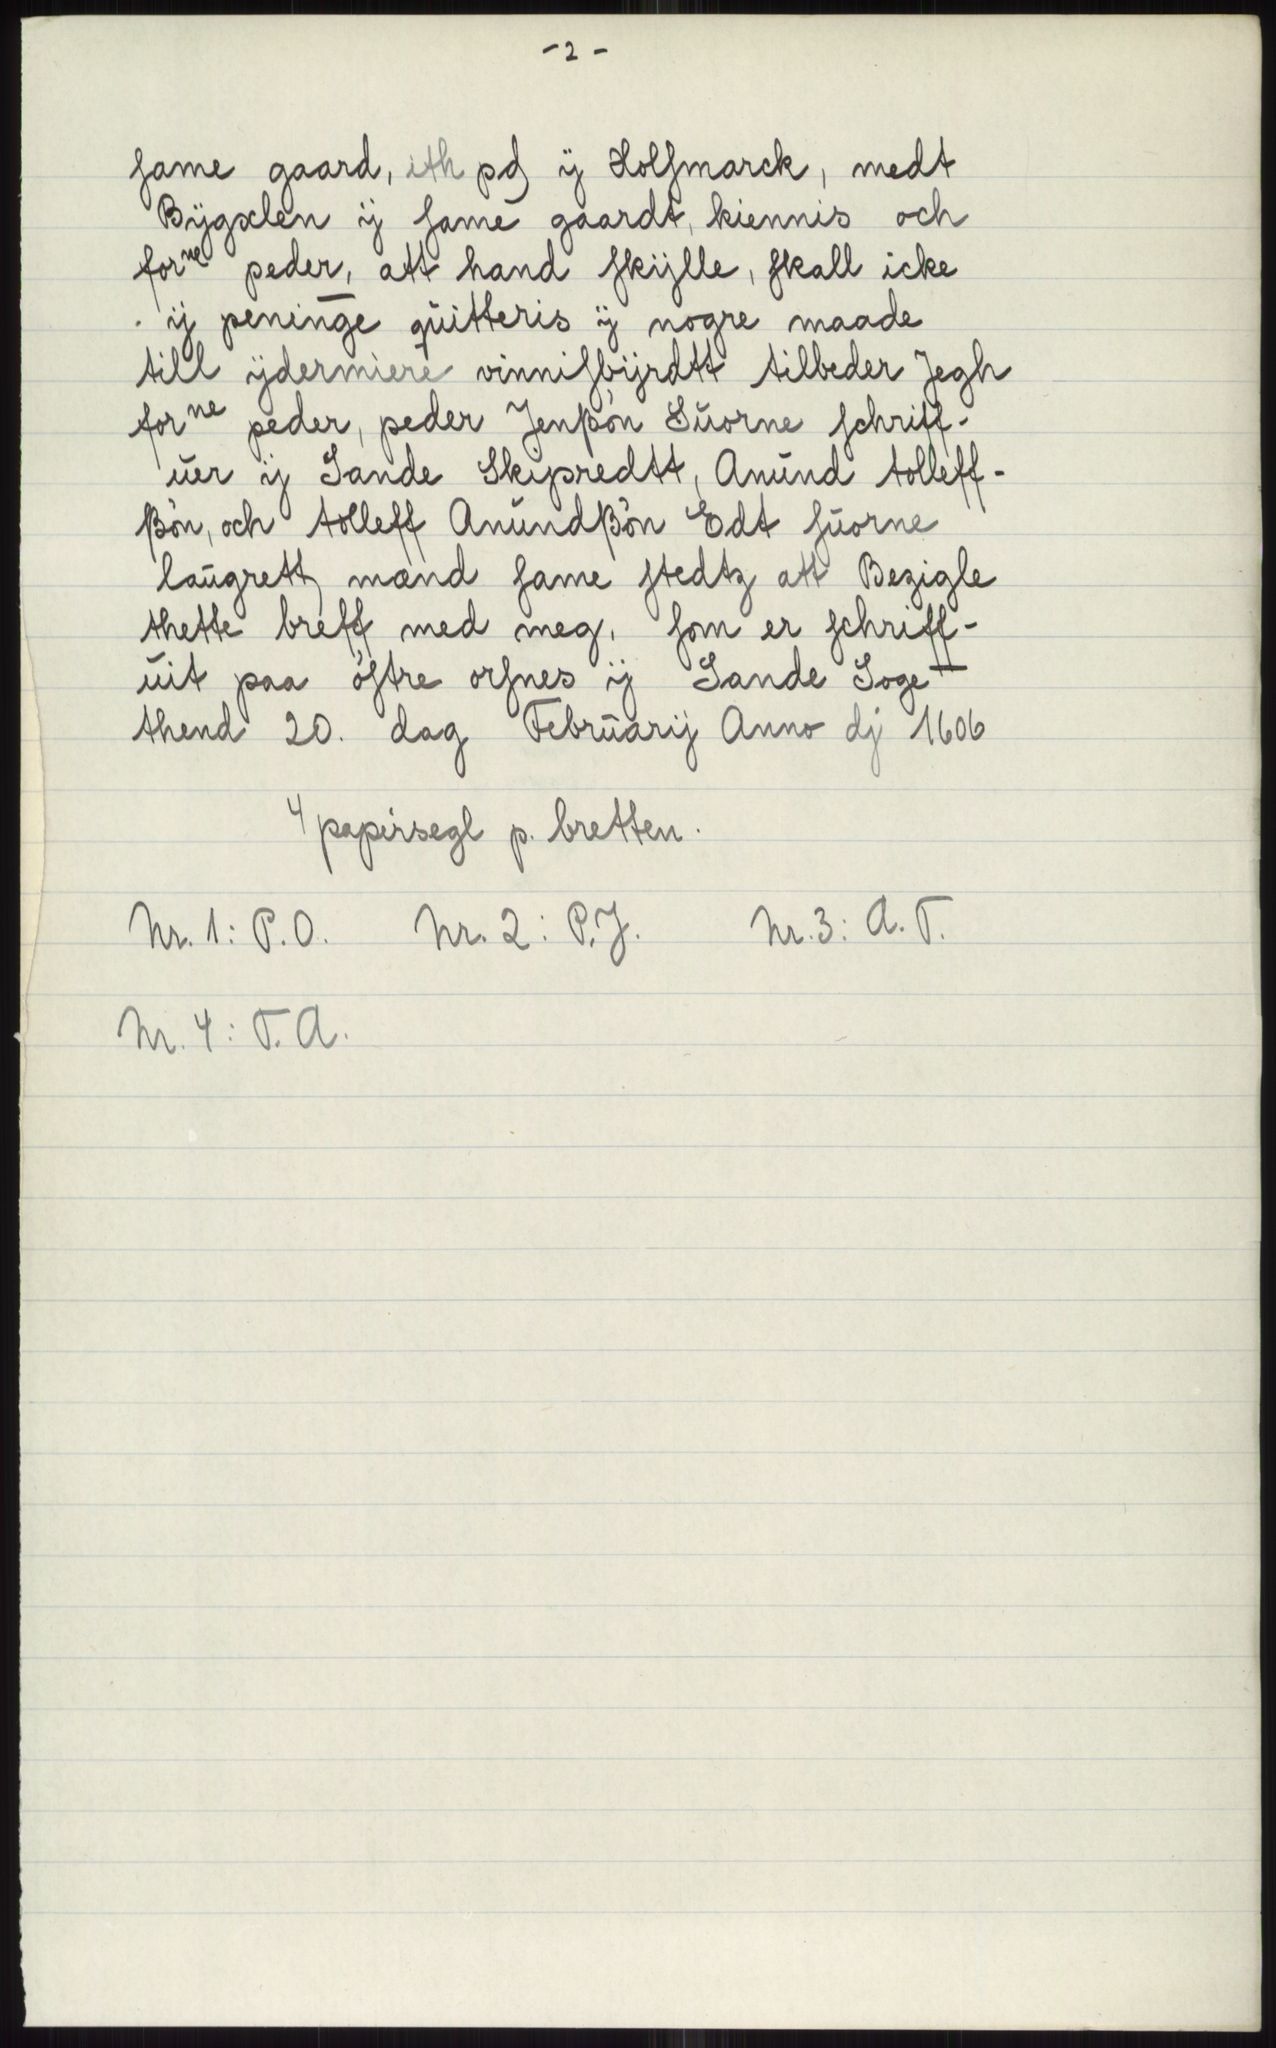 - 2 -
ſame gaard, ith pd ÿ Holſmarck, medt
Bÿgxlen ÿ ſame gaardt, kiennis och
forⁿᵉ peder, att hand ſkÿlle, ſkall icke
ÿ peninge quitteris ÿ nogre maade
till ÿdermiere vinniſbÿrdtt tilbeder Jegh
forⁿᵉ peder, peder Jenßön Suorne ſchriff-
uer ÿ Sande Skipredtt, Anund tolleff-
ßön, och tolleff Anundßön Edt ſuorne
laugrett mænd ſame ſtedtz att Bezigle
thette breff med meg, ſom er ſchriff-
uit paa öſtre orſnes ÿ Sande Soge
thend 20. dag Februarij Anno dj 1606
4 papirsegl p. bretten.
Nr. 1: P.O. Nr. 2: P.J. Nr. 3: A.T.
Nr. 4: T.A.